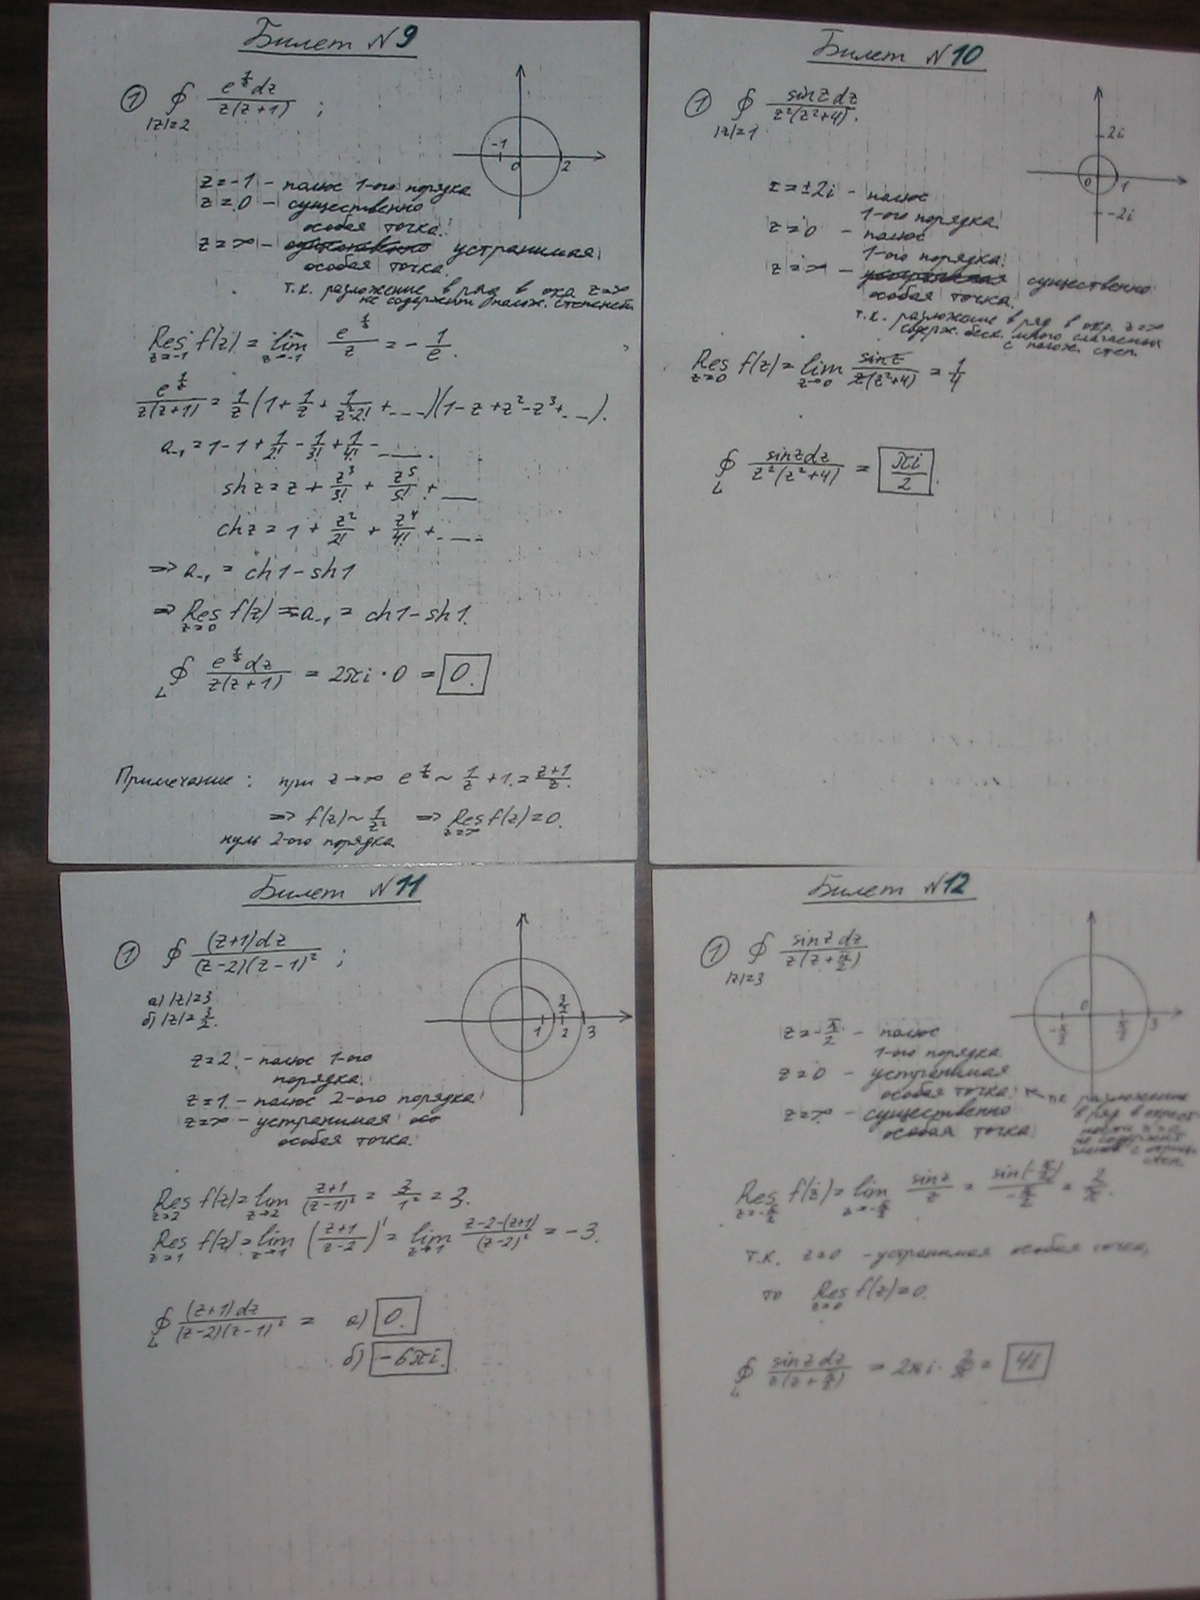 Билет N9
① ∮ e^{1/z} dz / z(z+1) ;
|z|=2
-1 0 2
z=-1 - полюс 1-ого порядка
z=0 - существенно
особая точка.
z=∞ - устранимая
особая точка.
т.к. разложение в ряд в окр z=∞
не содержит полож. степеней
Res f(z) = lim e^{1/z} / z = - 1/e.
z=-1 z→-1
e^{1/z} / z(z+1) = 1/z (1 + 1/z + 1/z²·2! + ...)(1 - z + z² - z³ + ...).
a₋₁ = 1 - 1 + 1/2! - 1/3! + 1/4! - ....
sh z = z + z³/3! + z⁵/5! + ...
ch z = 1 + z²/2! + z⁴/4! + ...
=> a₋₁ = ch1 - sh1
=> Res f(z) = a₋₁ = ch1 - sh1.
z=0
∮ e^{1/z} dz / z(z+1) = 2πi · 0 = 0.
L
Примечание : при z→∞ e^{1/z} ~ 1/z + 1 = z+1/z.
=> f(z) ~ 1/z² => Res f(z) = 0.
z=∞
нуль 2-ого порядка
Билет N10
① ∮ sinz dz / z²(z²+4).
|z|=1
2i
0 1
-2i
z=±2i - полюс
1-ого порядка
z=0 - полюс
1-ого порядка
z=∞ - существенно
особая точка.
т.к. разложение в ряд в окр. z=∞
содерж. беск. много слагаемых
с полож. степ.
Res f(z) = lim sinz / z(z²+4) = 1/4
z=0 z→0
∮ sinz dz / z²(z²+4) = πi/2.
L
Билет N11
① ∮ (z+1)dz / (z-2)(z-1)² ;
а) |z|=3
б) |z|=3/2.
1 3/2 2 3
z=2 - полюс 1-ого
порядка.
z=1 - полюс 2-ого порядка
z=∞ - устранимая осо
особая точка.
Res f(z) = lim z+1 / (z-1)² = 3/1² = 3.
z=2 z→2
Res f(z) = lim (z+1 / z-2)' = lim z-2-(z+1) / (z-2)² = -3.
z=1 z→1 z→1
∮ (z+1)dz / (z-2)(z-1)² = а) 0.
L
б) -6πi.
Билет N12
① ∮ sinz dz / z(z+π/2)
|z|=3
-π/2 0 π/2 3
z=-π/2 - полюс
1-ого порядка
z=0 - устранимая
особая точка.
z=∞ - существенно
особая точка.
т.к. разложение
в ряд в окрест
ности z=0
не содержит
членов с отриц.
степ.
Res f(z) = lim sinz / z = sin(-π/2) / -π/2 = 2/π.
z=-π/2 z→-π/2
т.к. z=0 - устранимая особая точка,
то Res f(z)=0.
z=0
∮ sinz dz / z(z+π/2) = 2πi · 2/π = 4i
L